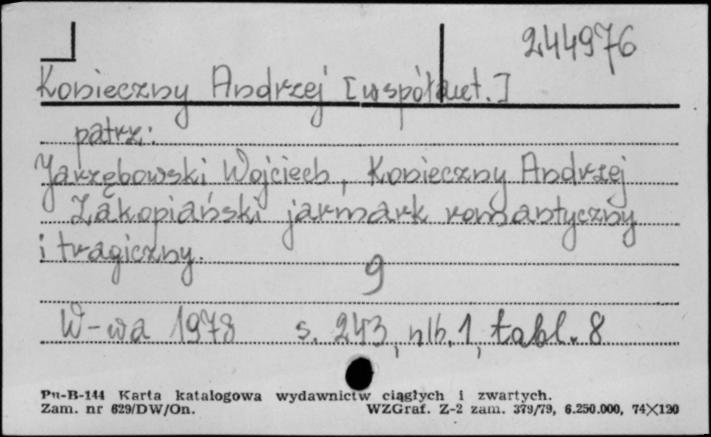 244976
Konieczny Andrzej [współaut.]
patrz:
Jarzębowski Wojciech, Konieczny Andrzej
Zakopiański jarmark romantyczny
i tragiczny.
9
W-wa 1978 s. 243, nlb. 1, tabl. 8
Pu-B-144 Karta katalogowa wydawnictw ciągłych i zwartych.
Zam. nr 629/DW/On. WZGraf. Z-2 zam. 379/79, 6.250.000, 74×120